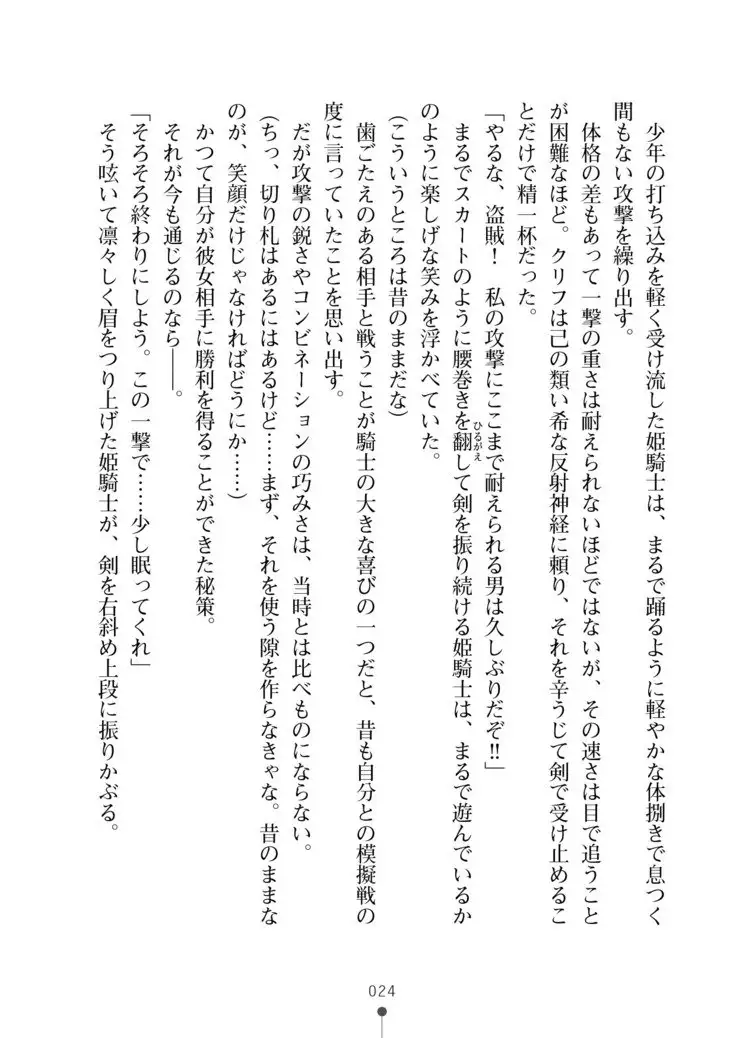 少年の打ち込みを軽く受け流した姫騎士は、まるで踊るように軽やかな体捌きで息つく
間もない攻撃を繰り出す。
体格の差もあって一撃の重さは耐えられないほどではないが、その速さは目で追うこと
が困難なほど。クリフは己の類い希な反射神経に頼り、それを辛うじて剣で受け止めるこ
とだけで精一杯だった。
「やるな、盗賊！　私の攻撃にここまで耐えられる男は久しぶりだぞ‼」
まるでスカートのように腰巻きを翻して剣を振り続ける姫騎士は、まるで遊んでいるか
ひるがえ
のように楽しげな笑みを浮かべていた。
（こういうところは昔のままだな）
歯ごたえのある相手と戦うことが騎士の大きな喜びの一つだと、昔も自分との模擬戦の
度に言っていたことを思い出す。
だが攻撃の鋭さやコンビネーションの巧みさは、当時とは比べものにならない。
（ちっ、切り札はあるにはあるけど……まず、それを使う隙を作らなきゃな。昔のままな
のが、笑顔だけじゃなければどうにか……）
かつて自分が彼女相手に勝利を得ることができた秘策。
それが今も通じるのなら――。
「そろそろ終わりにしよう。この一撃で……少し眠ってくれ」
そう呟いて凛々しく眉をつり上げた姫騎士が、剣を右斜め上段に振りかぶる。
024